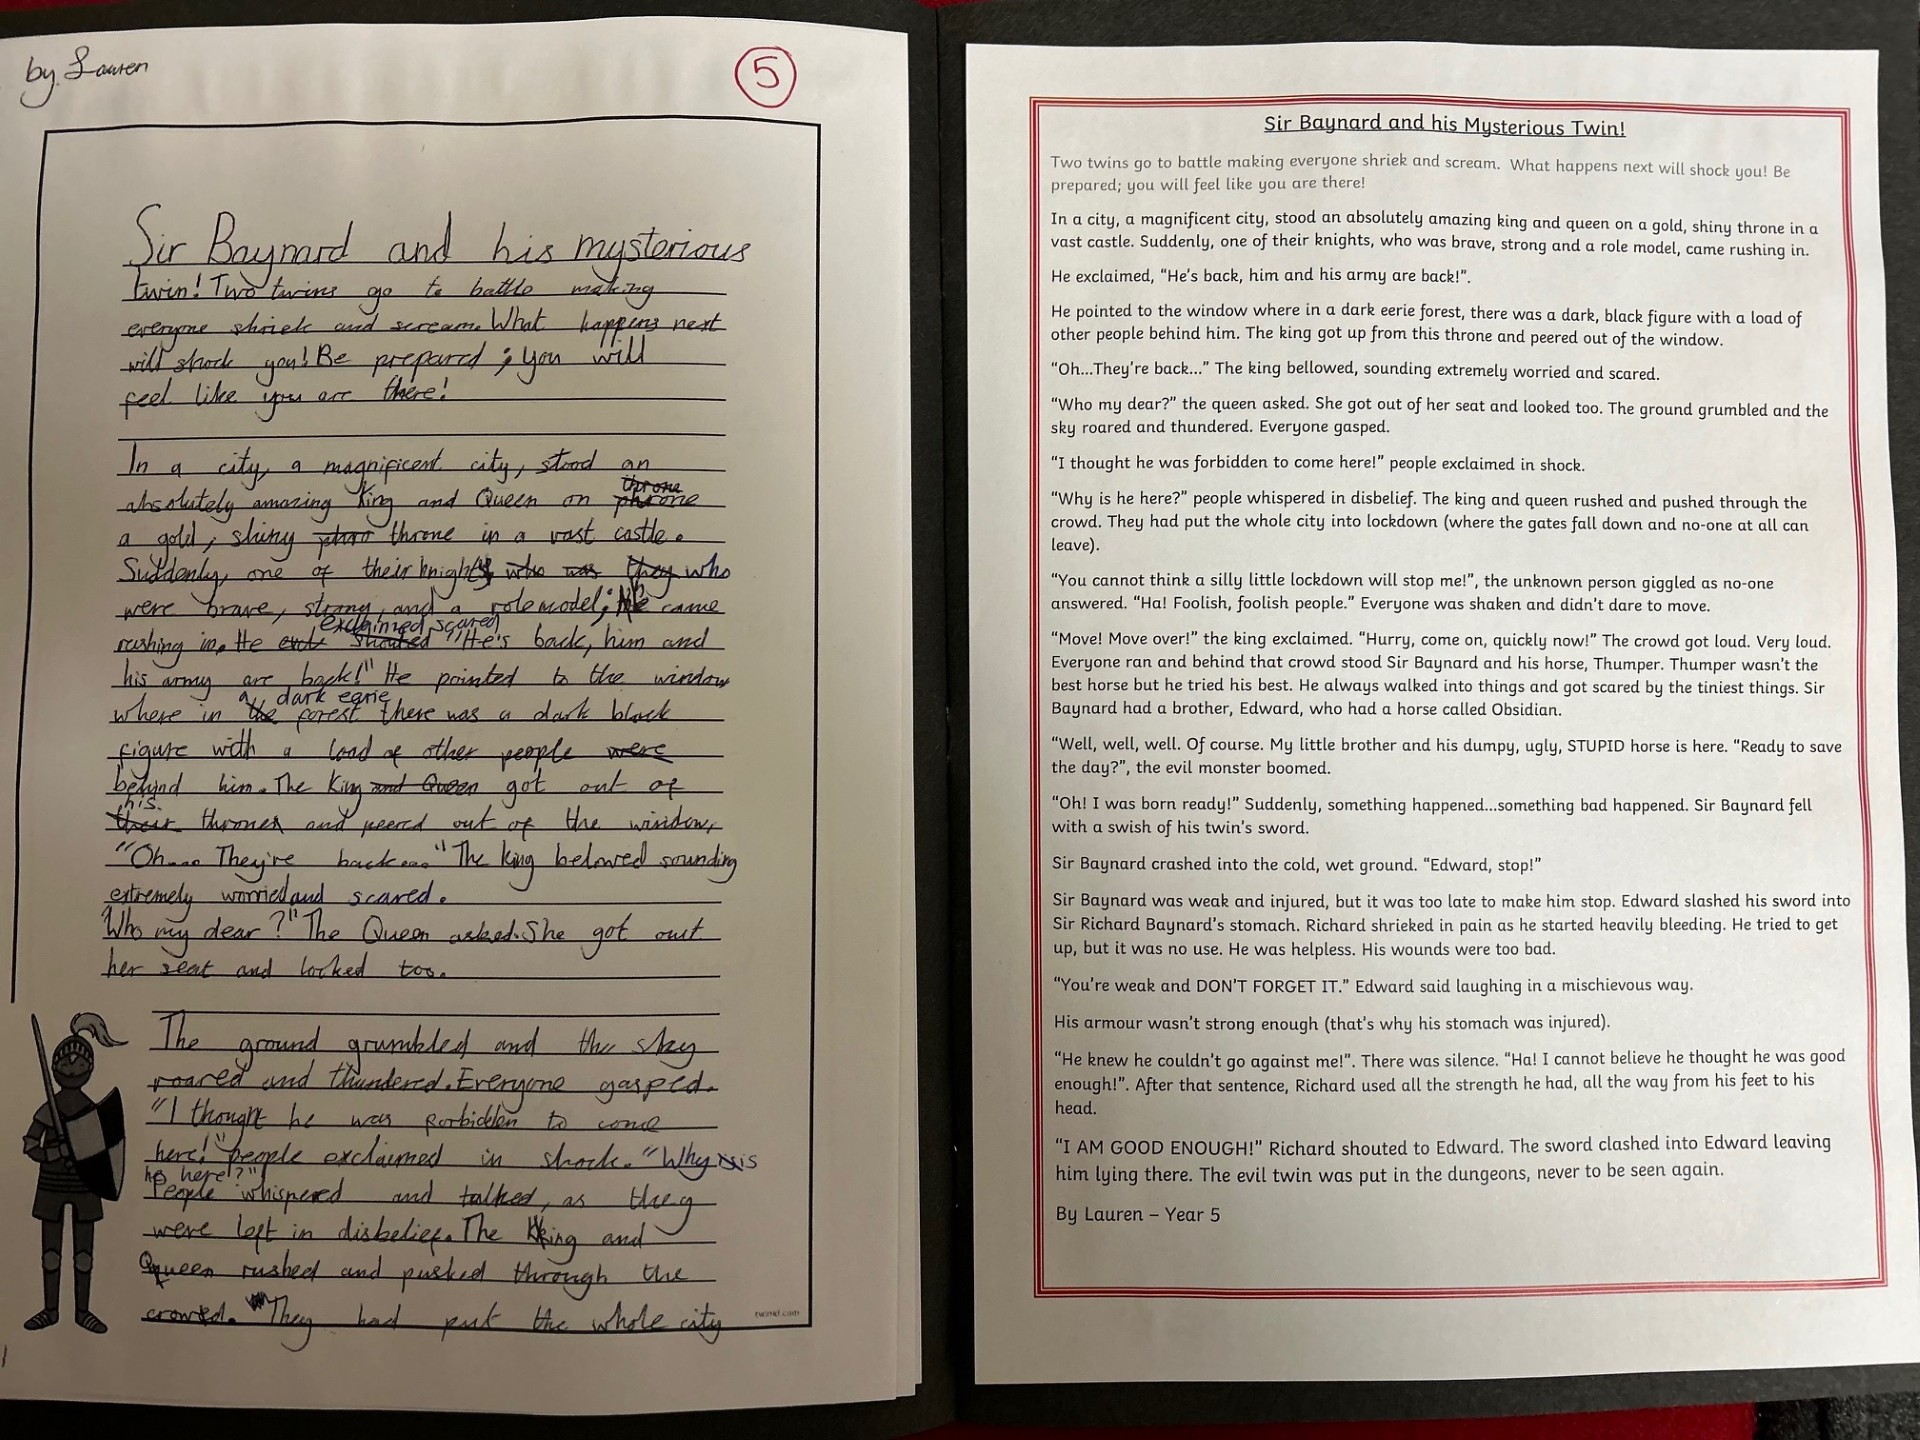 by Lauren
5
Sir Baynard and his mysterious
twin! Two twins go to battle making
everyone shriek and scream. What happens next
will shock you! Be prepared ; you will
feel like you are there!
In a city, a magnificent city, stood an
throne
absolutely amazing King and Queen on phrone
a gold, shiny phro throne in a vast castle.
Suddenly, one of their knights who was they who
were brave, strong, and a role model; He came
exclaimed scared
rushing in. He shouted "He's back, him and
his army are back!" He pointed to the window
a dark eerie
where in the forest there was a dark black
figure with a load of other people were
behind him. The King and Queen got out of
his
their thrones and peered out of the window,
"Oh.... They're back...." The king belowed sounding
extremely worried and scared.
"Who my dear?" The Queen asked. She got out
her seat and looked too.
The ground grumbled and the sky
roared and thundered. Everyone gasped.
"I thought he was forbidden to come
here!" people exclaimed in shock. "Why is
he here?"
People whispered and talked, as they
were left in disbelief. The King and
Queen rushed and pushed through the
crowd. They had put the whole city
twinkl.com
1
Sir Baynard and his Mysterious Twin!
Two twins go to battle making everyone shriek and scream. What happens next will shock you! Be
prepared; you will feel like you are there!
In a city, a magnificent city, stood an absolutely amazing king and queen on a gold, shiny throne in a
vast castle. Suddenly, one of their knights, who was brave, strong and a role model, came rushing in.
He exclaimed, “He’s back, him and his army are back!”.
He pointed to the window where in a dark eerie forest, there was a dark, black figure with a load of
other people behind him. The king got up from this throne and peered out of the window.
“Oh...They’re back...” The king bellowed, sounding extremely worried and scared.
“Who my dear?” the queen asked. She got out of her seat and looked too. The ground grumbled and the
sky roared and thundered. Everyone gasped.
“I thought he was forbidden to come here!” people exclaimed in shock.
“Why is he here?” people whispered in disbelief. The king and queen rushed and pushed through the
crowd. They had put the whole city into lockdown (where the gates fall down and no-one at all can
leave).
“You cannot think a silly little lockdown will stop me!”, the unknown person giggled as no-one
answered. “Ha! Foolish, foolish people.” Everyone was shaken and didn’t dare to move.
“Move! Move over!” the king exclaimed. “Hurry, come on, quickly now!” The crowd got loud. Very loud.
Everyone ran and behind that crowd stood Sir Baynard and his horse, Thumper. Thumper wasn’t the
best horse but he tried his best. He always walked into things and got scared by the tiniest things. Sir
Baynard had a brother, Edward, who had a horse called Obsidian.
“Well, well, well. Of course. My little brother and his dumpy, ugly, STUPID horse is here. “Ready to save
the day?”, the evil monster boomed.
“Oh! I was born ready!” Suddenly, something happened...something bad happened. Sir Baynard fell
with a swish of his twin’s sword.
Sir Baynard crashed into the cold, wet ground. “Edward, stop!”
Sir Baynard was weak and injured, but it was too late to make him stop. Edward slashed his sword into
Sir Richard Baynard’s stomach. Richard shrieked in pain as he started heavily bleeding. He tried to get
up, but it was no use. He was helpless. His wounds were too bad.
“You’re weak and DON’T FORGET IT.” Edward said laughing in a mischievous way.
His armour wasn’t strong enough (that’s why his stomach was injured).
“He knew he couldn’t go against me!”. There was silence. “Ha! I cannot believe he thought he was good
enough!”. After that sentence, Richard used all the strength he had, all the way from his feet to his
head.
“I AM GOOD ENOUGH!” Richard shouted to Edward. The sword clashed into Edward leaving
him lying there. The evil twin was put in the dungeons, never to be seen again.
By Lauren – Year 5